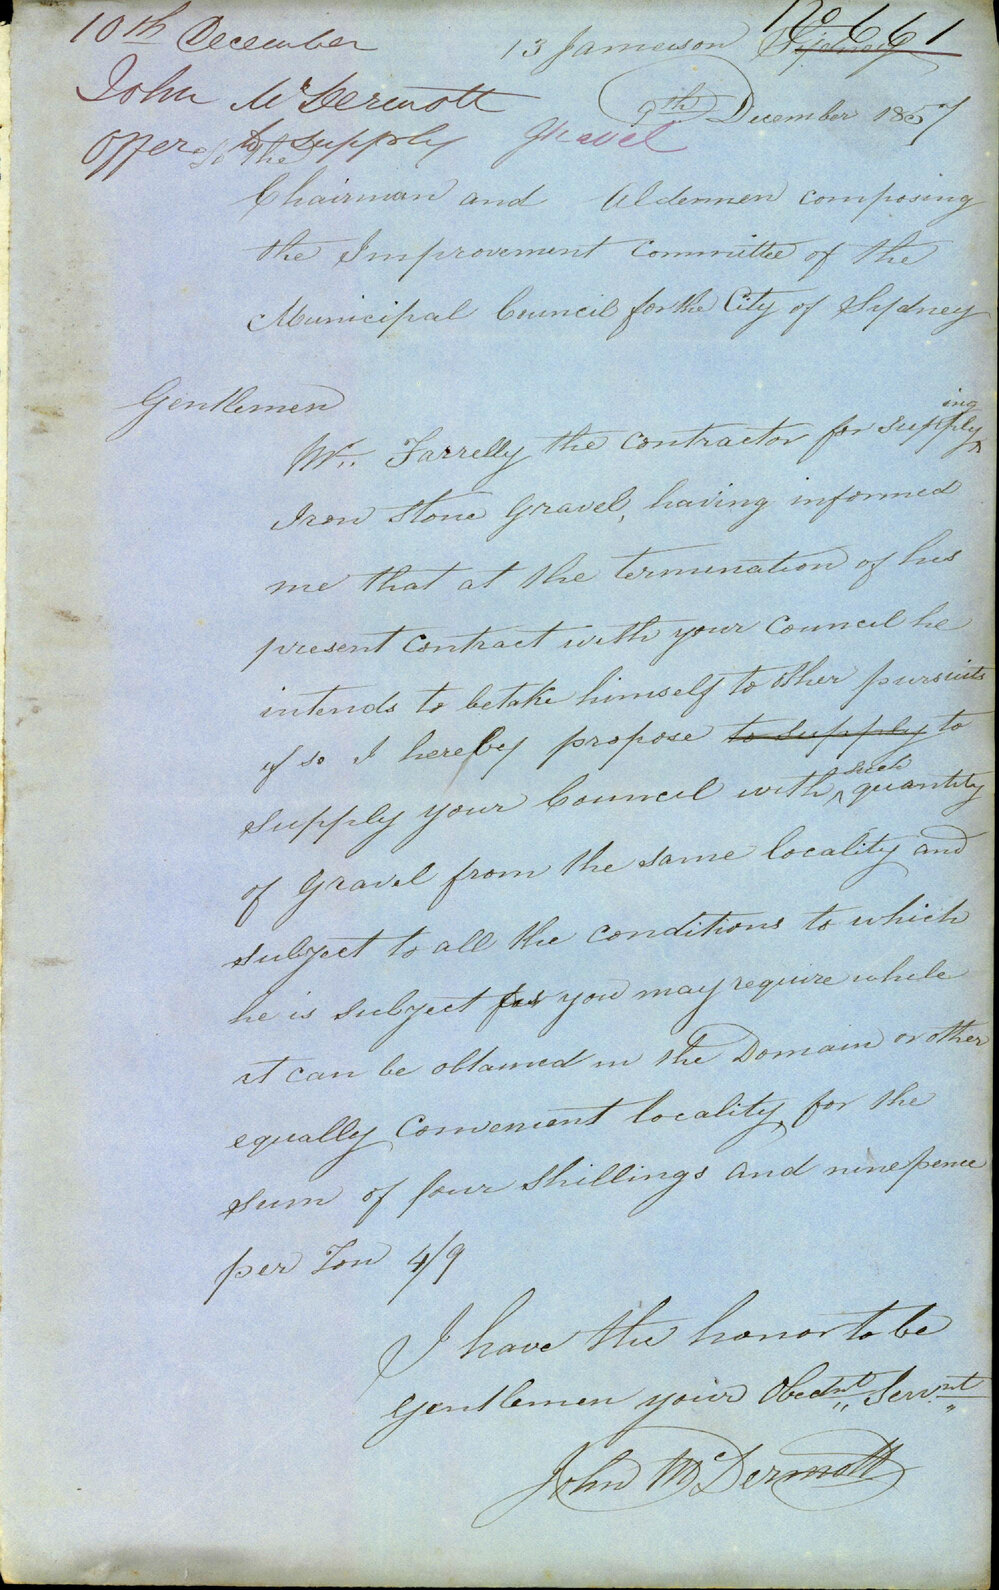 10th December
No 661
John McDermott
offers to supply gravel
13 Jameison St Sydney
9th December 1857
To the
Chairman and Aldermen composing
the Improvement Committee of the
Municipal Council for the City of Sydney
Gentlemen
Mr. Farrelly the contractor for supplying
Iron Stone Gravel, having informed
me that at the termination of his
present contract with your Council he
intends to betake himself to other pursuits
if so I hereby propose to supply to
supply your Council with such quantity
of Gravel from the same locality and
subject to all the conditions to which
he is subject as you may require while
it can be obtained in the Domain or other
equally convenient locality, for the
sum of four shillings and ninepence
per Ton 4/9
I have the honor to be
Gentlemen your Obednt Servnt
John McDermott